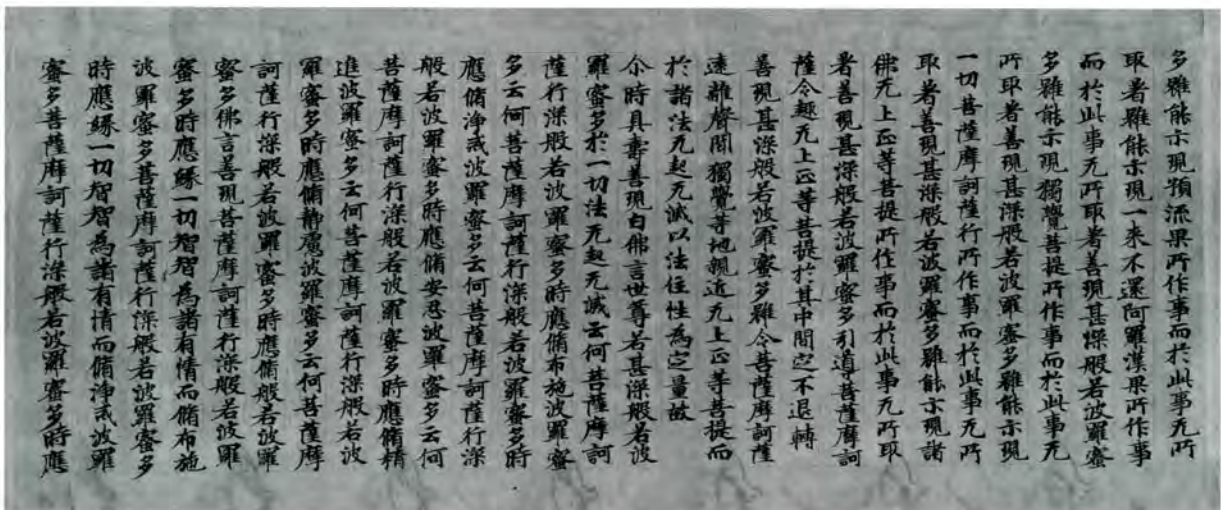 多雖能示現預流果所作事而於此事无所
取著雖能示現一来不還阿羅漢果所作事
而於此事无所取著善現甚深般若波羅蜜
多雖能示現獨覺菩提所作事而於此事无
所取著善現甚深般若波羅蜜多雖能示現
一切菩薩摩訶薩行所作事而於此事无所
取著善現甚深般若波羅蜜多雖能示現諸
佛无上正等菩提所作事而於此事无所取
著善現甚深般若波羅蜜多引導菩薩摩訶
薩令趣无上正等菩提於其中間定不退轉
善現甚深般若波羅蜜多雖令菩薩摩訶薩
遠離聲聞獨覺等地親近无上正等菩提而
於諸法无起无滅以法住性為定量故
尒時具壽善現白佛言世尊若甚深般若波
羅蜜多於一切法无起无滅云何菩薩摩訶
薩行深般若波羅蜜多時應脩布施波羅蜜
多云何菩薩摩訶薩行深般若波羅蜜多時
應脩淨戒波羅蜜多云何菩薩摩訶薩行深
般若波羅蜜多時應脩安忍波羅蜜多云何
菩薩摩訶薩行深般若波羅蜜多時應脩精
進波羅蜜多云何菩薩摩訶薩行深般若波
羅蜜多時應脩靜慮波羅蜜多云何菩薩摩
訶薩行深般若波羅蜜多時應脩般若波羅
蜜多佛言善現菩薩摩訶薩行深般若波羅
蜜多時應緣一切智智為諸有情而脩布施
波羅蜜多菩薩摩訶薩行深般若波羅蜜多
時應緣一切智智為諸有情而脩淨戒波羅
蜜多菩薩摩訶薩行深般若波羅蜜多時應